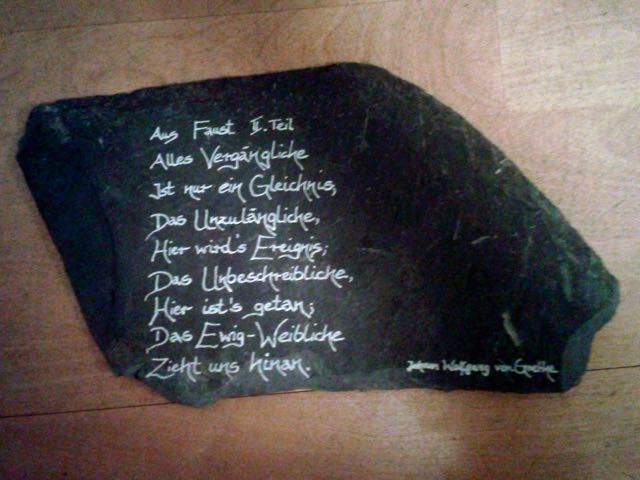 Aus Faust II. Teil
Alles Vergängliche
Ist nur ein Gleichnis,
Das Unzulängliche,
Hier wird's Ereignis;
Das Unbeschreibliche,
Hier ist's getan;
Das Ewig-Weibliche
Zieht uns hinan.
Johann Wolfgang von Goethe